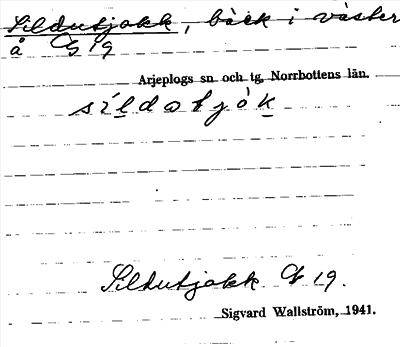 Sildutjokk, bäck i väster
å G 19
Arjeplogs sn och tg, Norrbottens län.
síldatjòk
Sildutjokk G 19.
Sigvard Wallström, 1941.